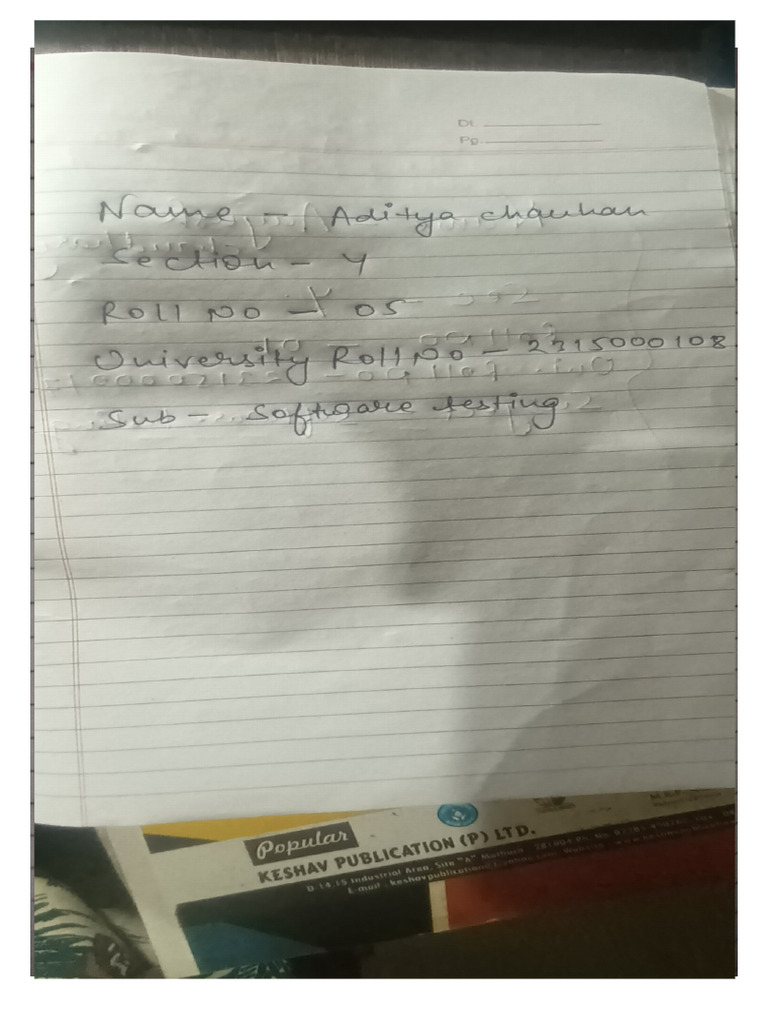 Dt.
Pg.
Name - Aditya chauhan
Section - Y
Roll No - 05
University Roll No - 2315000108
Sub - Software testing
Popular
KESHAV PUBLICATION (P) LTD.
D-14,15 Industrial Area, Site "A" Mathura
E-mail : keshavpublication